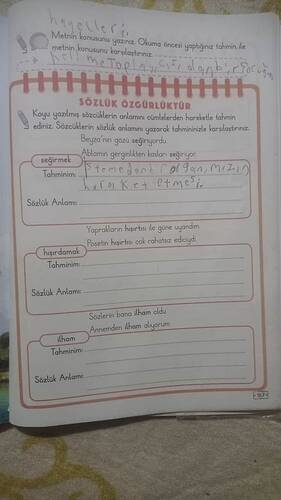 hayelleri
Metnin konusunu yazınız. Okuma öncesi yaptığınız tahmin ile
metnin konusunu karşılaştırınız.
SÖZLÜK ÖZGÜRLÜKTÜR
Koyu yazılmış sözcüklerin anlamını cümlelerden hareketle tahmin
ediniz. Sözcüklerin sözlük anlamını yazarak tahmininizle karşılaştırınız.
Beyza'nın gözü seğiriyordu.
Ablamın gerginlikten kasları seğiriyor.
seğirmek
Tahminim: istemeden organımızın
hareket etmesi.
Sözlük Anlamı:
Yaprakların hışırtısı ile güne uyandım.
Poşetin hışırtısı çok rahatsız ediciydi.
hışırdamak
Tahminim:
Sözlük Anlamı:
Sözlerin bana ilham oldu.
Annemden ilham alıyorum.
ilham
Tahminim:
Sözlük Anlamı: